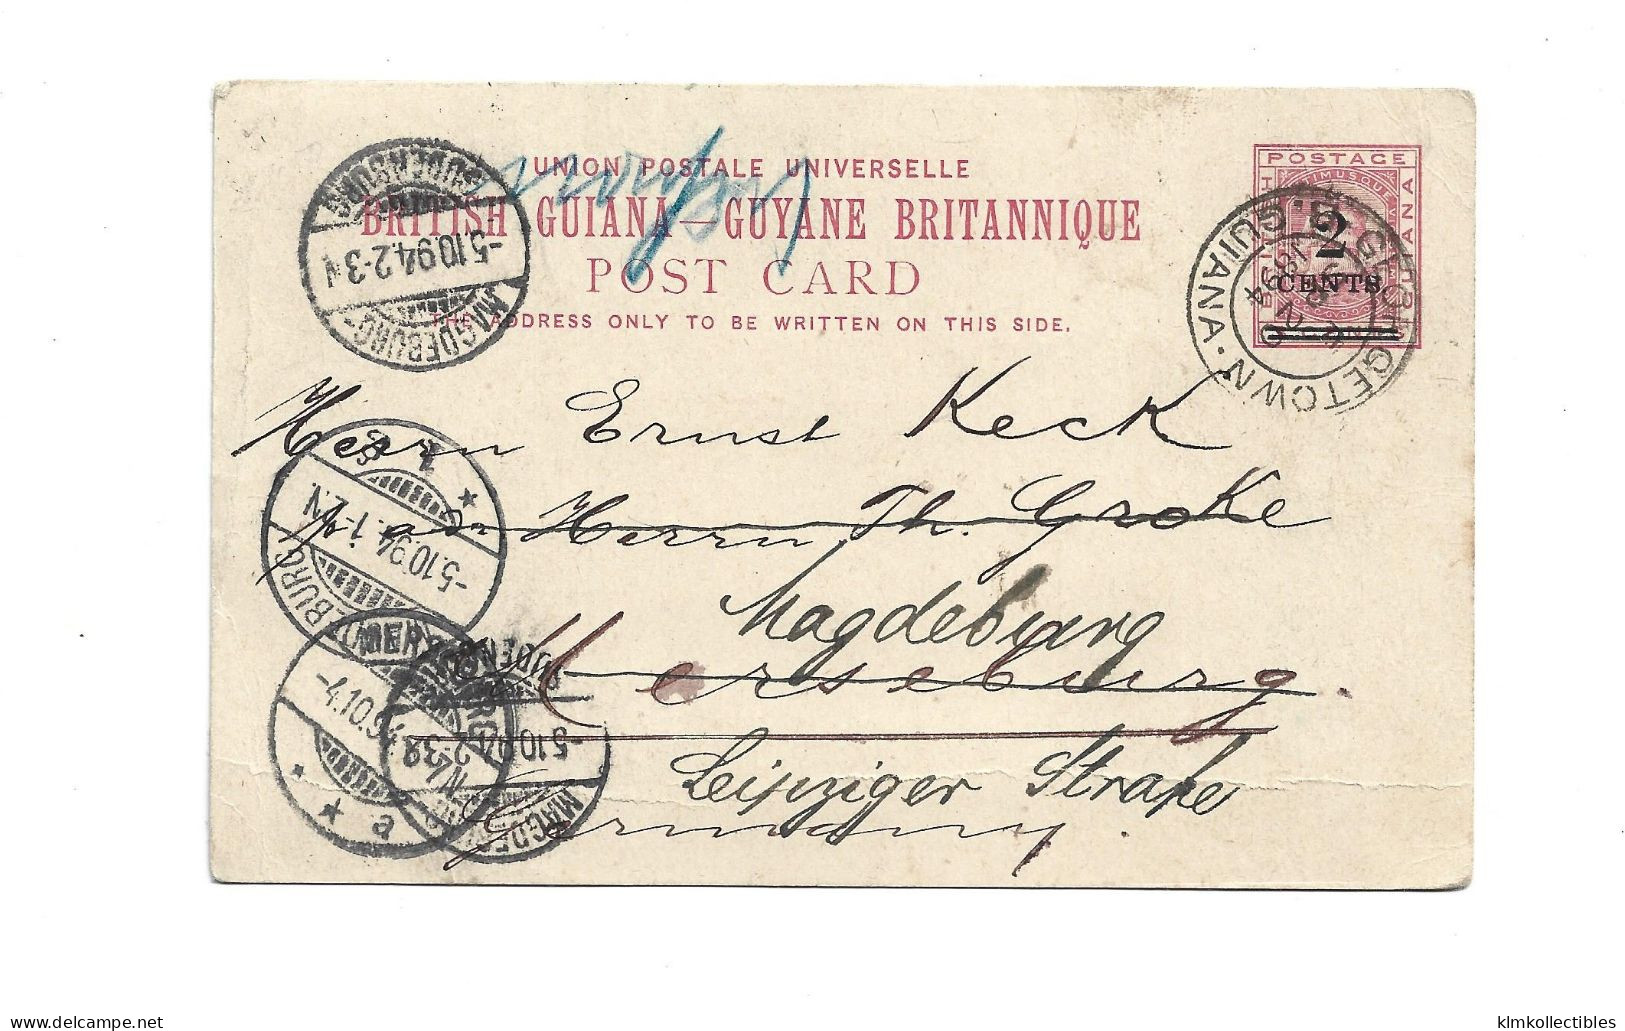 UNION POSTALE UNIVERSELLE
BRITISH GUIANA—GUYANE BRITANNIQUE
POST CARD
THE ADDRESS ONLY TO BE WRITTEN ON THIS SIDE.
POSTAGE
2
CENTS
GEORGETOWN
GUIANA
1894
BUCKAU
-5.10.94.2-3N
MAGDEBURG-
1
-5.10.94.1-2N.
BURG
MERSEBURG
-4.10.94
a
-5.10.94
MAGDEBURG
Herrn Ernst Keck
Herrn Th. Groke
Magdeburg
Merseburg.
Leipziger Straße
Germany.
klmkollectibles